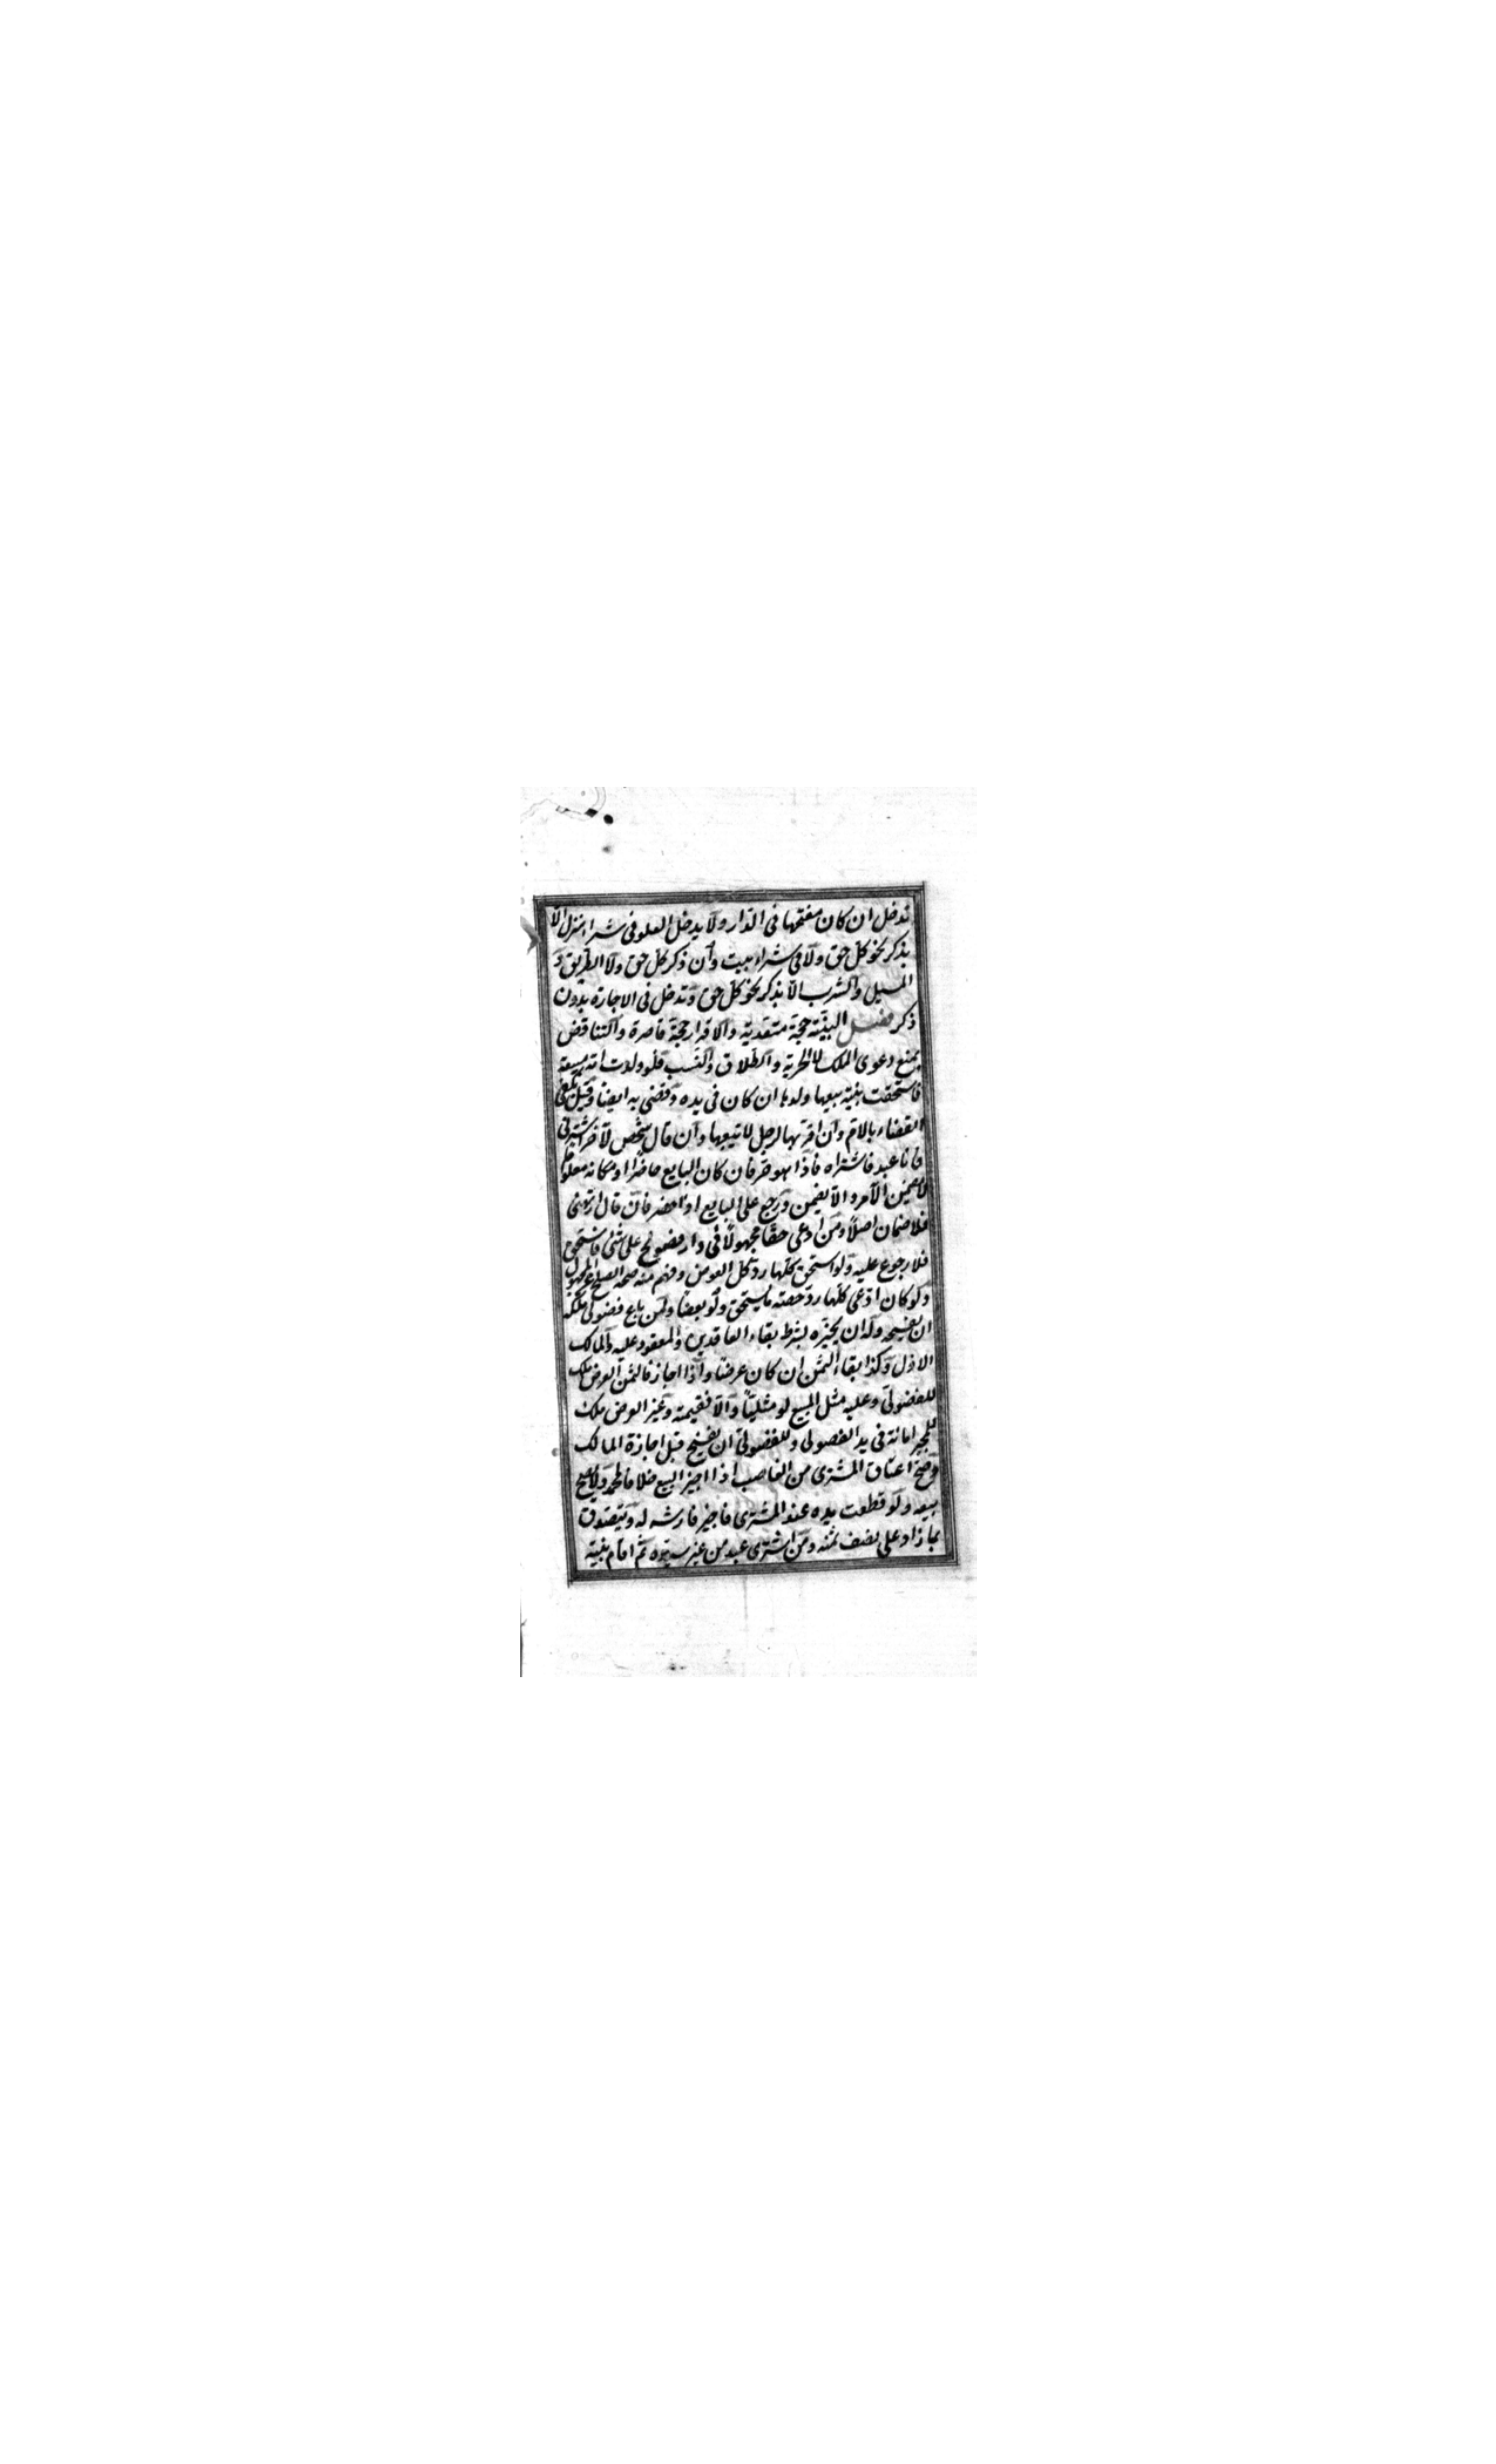 تدخل ان كان مفتحها فى الدار ولا يدخل العلو فى شراء منزل الا
بذكر نحو كل حق ولا فى شراء بيت وان ذكر كل حق ولا الطريق و
المسيل والشرب الا بذكر نحو كل حق وتدخل فى الاجارة بدون
ذكر فصل البينة حجة متعدية والاقرار حجة قاصرة والتناقض
يمنع دعوى الملك لا الحرية والطلاق والنسب فلو ولدت امة مبيعة
فاستحقت ببينة تبعها ولدها ان كان فى يده وقضى به ايضا وقيل يكفى
القضاء بالام وان اقر بها لرجل لا يتبعها وان قال شخص لآخر اشترنى
فانا عبد فاشتراه فاذا هو حر فان كان البايع حاضرا او مكانه معلوما
لا يضمن الآمر والا يضمن ورجع على البايع اذا حضر فان قال ارتهنى
فلا ضمان اصلا ومن ادعى حقا مجهولا فى دار فصولح على شئ فاستحق
فلا رجوع عليه ولو استحق كلها رد كل العوض وفهم منه صحة الصلح عن المجهول
ولو كان ادعى كلها رد حصة ما يستحق ولو بعضا ولمن باع فضولى ملكه
ان يفسخه وله ان يجيزه بشرط بقاء العاقدين والمعقود عليه والمالك
الاول وكذا بقاء الثمن ان كان عرضا واذا اجاز فالثمن العرض ملك
للفضولى وعليه مثل المبيع لو مثليا والا فقيمته وغير العرض ملك
للمجيز امانة فى يد الفضولى وللفضولى ان يفسخ قبل اجازة المالك
وصح اعتاق المشترى من الغاصب اذا اجيز البيع خلافا لمحمد ولا يصح
بيعه ولو قطعت يده عند المشترى فاجيز فارشه له ويتصدق
بما زاد على نصف ثمنه ومن اشترى عبدا من غير سيده ثم اقام بينة